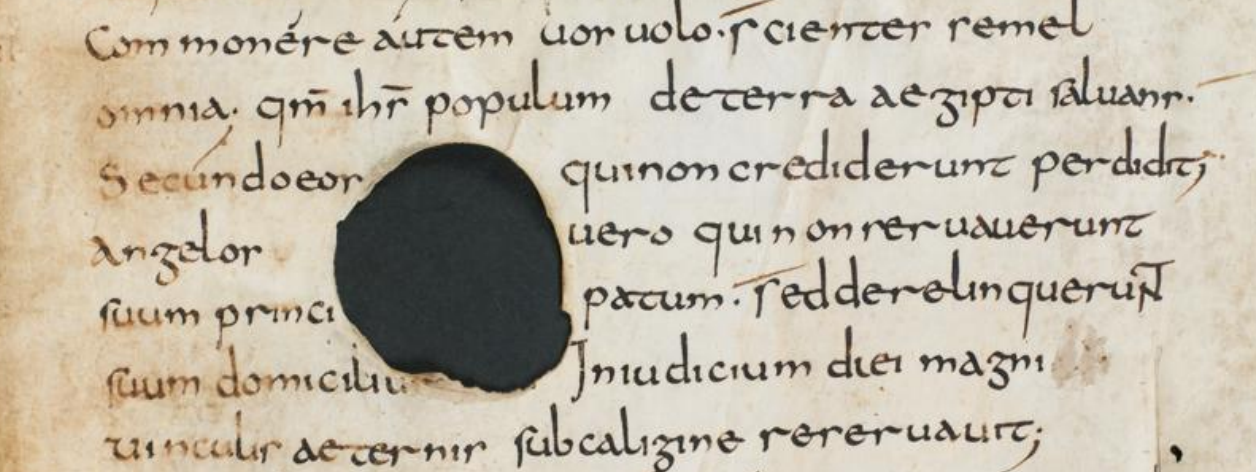 Commonére aútem uos uolo. scientes semel
omnia. qm̄ ihs̄ populum de terra aegipti saluans.
Secundo eos qui non crediderunt perdidit;
Angelos uero qui non seruauerunt
suum princi patum. sed derelinquerunt
suum domiciliu In iudicium diei magni
uinculis aeternis sub caligine reseruauit;